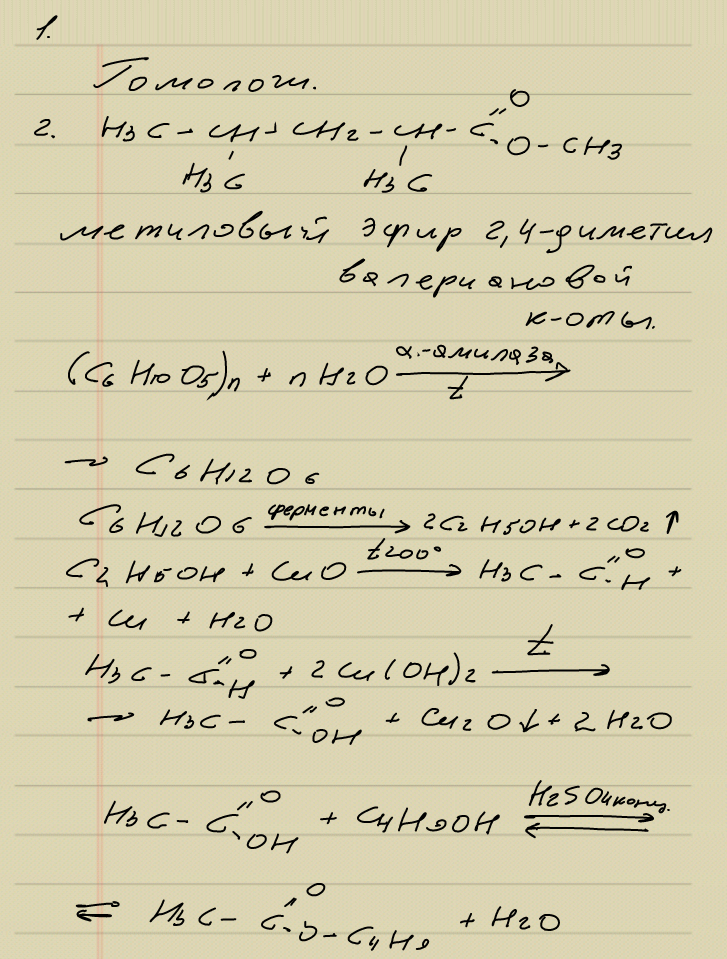 1.
Гомологи.
O
2. H3C - CH - CH2 - CH - C
O - CH3
H3C H3C
метиловый эфир 2,4-диметил
валериановой
к-оты.
(C6H10O5)n + nH2O α-амилаза t
→ C6H12O6
C6H12O6 ферменты → 2C2H5OH + 2CO2 ↑
C2H5OH + CuO t200° → H3C - C=O H +
+ Cu + H2O
H3C - C=O H + 2Cu(OH)2 t →
→ H3C - C=O OH + Cu2O↓ + 2H2O
H3C - C=O OH + C4H9OH H2SO4конц. ⇌
⇌ H3C - C=O O - C4H9 + H2O